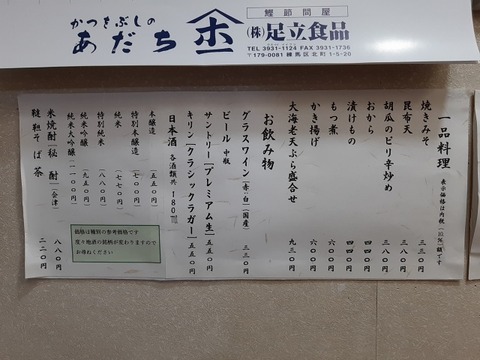 かつをぶしの
あだち
鰹節問屋
(株)足立食品
TEL 3931-1124 FAX 3931-1736
〒179-0081 練馬区北町1-5-20
一品料理 表示価格は内税(10%)額です
焼きみそ 三三〇円
昆布天 三八〇円
胡瓜のピリ辛炒め 三八〇円
おから 四四〇円
漬けもの 四四〇円
もつ煮 六〇〇円
かき揚げ 六〇〇円
大海老天ぷら盛合せ 九三〇円
お飲み物
グラスワイン(赤・白)(国産) 三三〇円
ビール 中瓶
サントリー[プレミアム生] 五五〇円
キリン[クラシックラガー] 五五〇円
日本酒 各酒類共 180㎖
本醸造 五五〇円
特別本醸造 七七〇円
純米 七七〇円
特別純米 八八〇円
純米吟醸 九五〇円
純米大吟醸 一一〇〇円
価格は種別の参考価格です
度々地酒の銘柄が変わりますので
お尋ねください
米焼酎[秘酎](会津) 八八〇円
韃靼そば茶 二二〇円